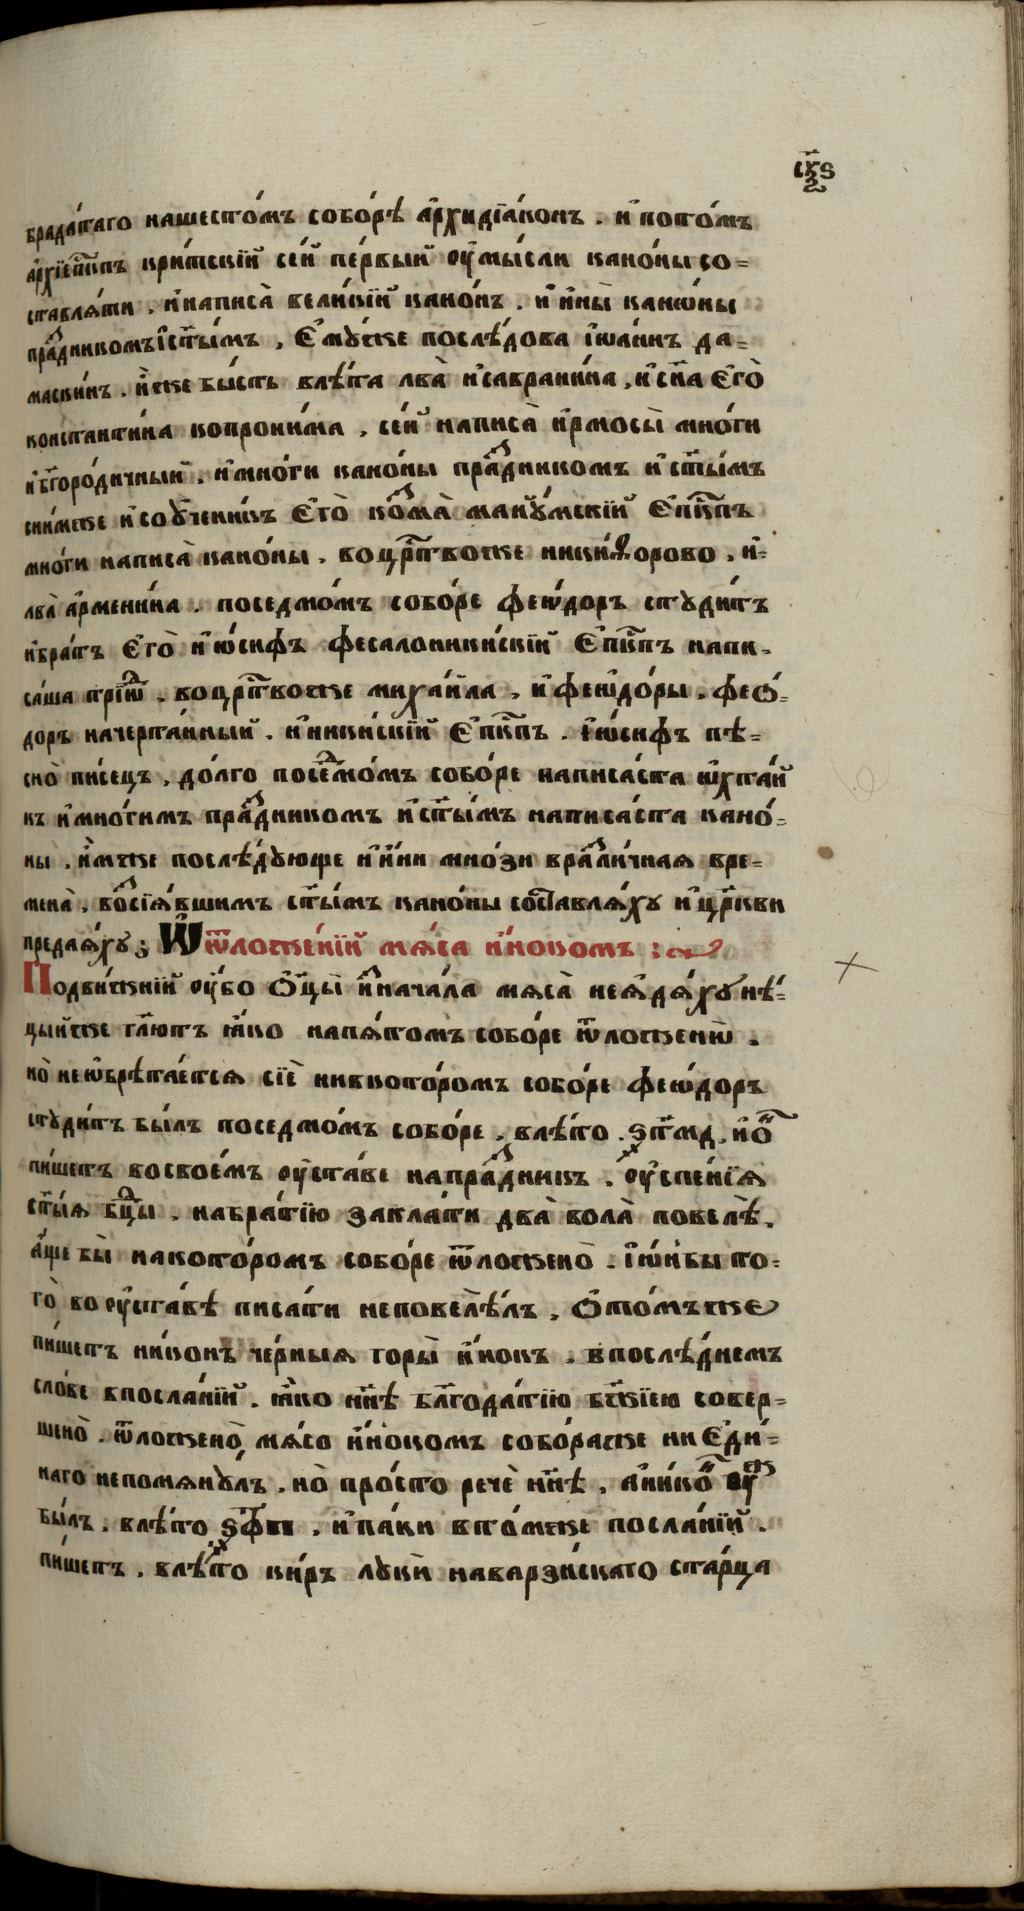 скз҃
брада́таго нашесто́мъ собо́рѣ а҆рхидїа́конъ . и҆ пото́мъ
а҆рхїепⷭ҇кпъ кри́тскїй се́й пе́рвый оу҆мы́сли кано́ны со=
ставлѧ́ти . и҆написа̀ вели́кїй кано́нъ . и҆ и҆ны̀ канѡ́ны
праⷥ҇дникомъ и҆ст҃ы́мъ , є҆мꙋ́же послѣ́дова і҆ѡа́ннъ да=
маски́нъ . и҆́же бы́сть влѣ́та лва̀ и҆савранина , и҆ сн҃а є҆го̀
константи́на копрони́ма , се́й написа̀ и҆рмосы̀ мно́ги
и҆ бг҃оро́дичный . и҆ мно́ги кано́ны праⷥ҇дникомъ и҆ ст҃ы́мъ
сни́мже и҆ соꙋчени́къ є҆го̀ коⷥ҇ма̀ маиꙋ́мскїй є҆пⷭ҇кпъ
мно́ги написа̀ кано́ны . во црⷭ҇твоже ники́ѳорово . и҆=
лва̀ а҆рмени́на . поседмо́мъ собо́ре феѡ́доръ стꙋди́тъ
и҆бра́тъ є҆го̀ и҆ ю́сифъ фесалоники́скїй є҆пⷭ҇кпъ напи-
са́ша трїѡⷣ . во црⷭ҇твоже миха́ила , и҆ феѡ҆до́ры . фео́=
доръ начерта́нный . и҆ ники́скїй є҆пⷭ҇кпъ . і҆ю́сифъ пѣ=
сно̀ пи́сецъ , до́лго посеⷣмо́мъ собо́ре написа́ста ѡ҆хтай
къ и҆ мно́гимъ праⷥ҇дникомъ и҆ ст҃ы́мъ написа́ста кано́=
ны . и҆́мже послѣ́дꙋюще и҆ и҆ни мно́зи враⷥ҇ли́чнаѧ вре=
мена̀ . воⷥ҇сїѧ́вшимъ ст҃ы́мъ кано́ны соⷭ҇тавлѧ́хꙋ и҆ цр҃кви
предаѧ́хꙋ ; Ѡ҆ ѿложе́нїй мѧ́са и҆́нокомъ :
Подви́жнїй оу҆́бо ѻ҆ц҃ы̀ и҆ⷥ҇нача́ла мѧ́са неꙗ҆дѧ́хꙋ нѣ́=
цыйже гл҃ютъ ꙗ҆́ко напѧ́томъ собо́ре ѿложенѡ .
но̀ неѡ҆брѣта́етсѧ сїѐ никото́ромъ собо́ре феѡ́доръ
стꙋди́тъ бы́лъ поседмо́мъ собо́ре . влѣ́то . ҂ѕт҃мд . и҆ оⷩ҇
пи́шетъ восвое́мъ оу҆ста́ве напраⷥ҇дникъ . оу҆спе́нїѧ
ст҃ы́ѧ бцⷣы . набра́тїю закла́ти два̀ вола̀ повелѣ̀ .
а҆́ще бы̀ накото́ромъ собо́ре ѿложено̀ . і҆ ѡ҆́нбы то=
го̀ во оу҆ста́вѣ писа́ти неповелѣ́лъ , ѻ҆ то́мъже
пи́шетъ ни́конъ че́рныѧ горы̀ и҆́нокъ . впослѣ́днемъ
сло́ве впосла́нїй . ꙗ҆́ко нн҃ѣ бл҃года́тїю бж҃їею совер=
шено̀ . ѿложено̀ мѧ́со и҆́нокомъ собо́раже ни є҆ди́=
наго непомѧнꙋ́лъ . но̀ про́сто речѐ нн҃ѣ , а҆ни́коⷩ҇ оу҆ж
бы́лъ . влѣ́то ҂ѕф҃п . и҆ па́ки вто́мже посла́нїй .
пи́шетъ . влѣ́то ки́ръ лꙋкѝ наварзи́скаго ста́рца